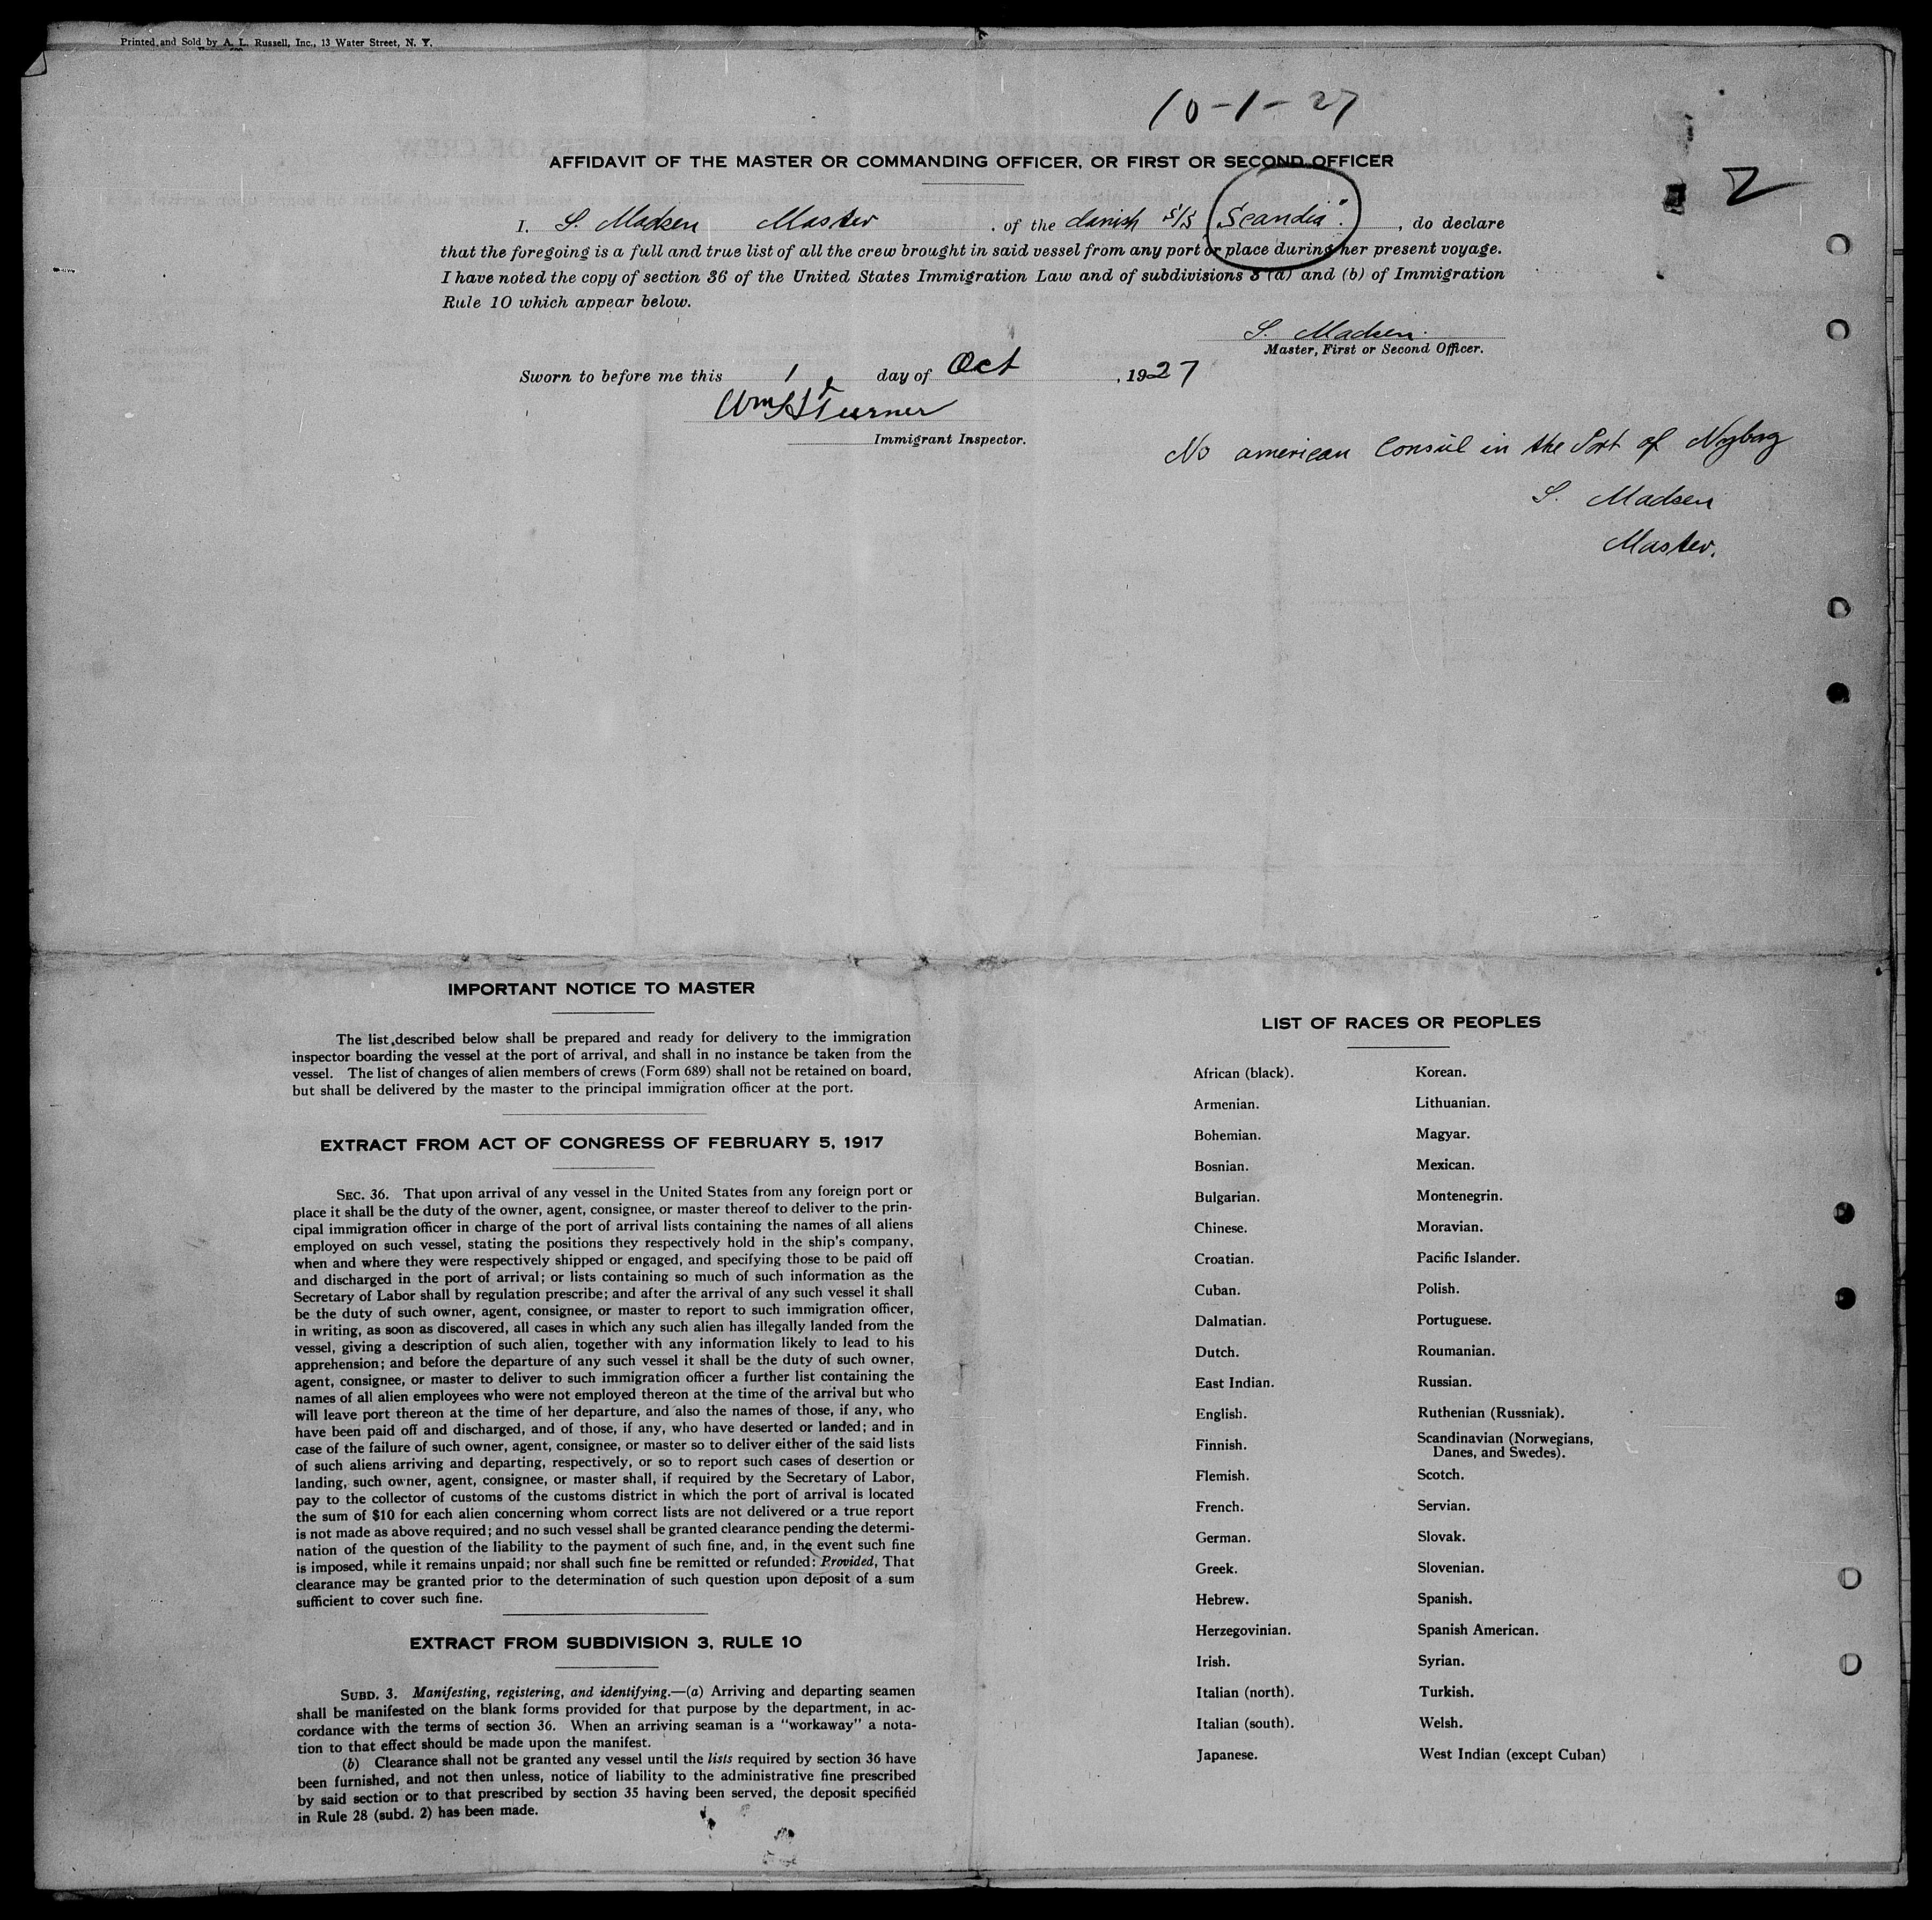 Printed and Sold by A. L. Russell, Inc., 13 Water Street, N. Y.
10-1-27
2
AFFIDAVIT OF THE MASTER OR COMMANDING OFFICER, OR FIRST OR SECOND OFFICER
I, S. Madsen Master, of the danish S/S "Scandia", do declare
that the foregoing is a full and true list of all the crew brought in said vessel from any port or place during her present voyage.
I have noted the copy of section 36 of the United States Immigration Law and of subdivisions 3 (a) and (b) of Immigration
Rule 10 which appear below.
S. Madsen.
Master, First or Second Officer.
Sworn to before me this 1 day of Oct, 1927
Wm H Turner
Immigrant Inspector.
No american Consul in the Port of Nyborg
S. Madsen
Master.
IMPORTANT NOTICE TO MASTER
The list described below shall be prepared and ready for delivery to the immigration
inspector boarding the vessel at the port of arrival, and shall in no instance be taken from the
vessel. The list of changes of alien members of crews (Form 689) shall not be retained on board,
but shall be delivered by the master to the principal immigration officer at the port.
EXTRACT FROM ACT OF CONGRESS OF FEBRUARY 5, 1917
SEC. 36. That upon arrival of any vessel in the United States from any foreign port or
place it shall be the duty of the owner, agent, consignee, or master thereof to deliver to the prin-
cipal immigration officer in charge of the port of arrival lists containing the names of all aliens
employed on such vessel, stating the positions they respectively hold in the ship's company,
when and where they were respectively shipped or engaged, and specifying those to be paid off
and discharged in the port of arrival; or lists containing so much of such information as the
Secretary of Labor shall by regulation prescribe; and after the arrival of any such vessel it shall
be the duty of such owner, agent, consignee, or master to report to such immigration officer,
in writing, as soon as discovered, all cases in which any such alien has illegally landed from the
vessel, giving a description of such alien, together with any information likely to lead to his
apprehension; and before the departure of any such vessel it shall be the duty of such owner,
agent, consignee, or master to deliver to such immigration officer a further list containing the
names of all alien employees who were not employed thereon at the time of the arrival but who
will leave port thereon at the time of her departure, and also the names of those, if any, who
have been paid off and discharged, and of those, if any, who have deserted or landed; and in
case of the failure of such owner, agent, consignee, or master so to deliver either of the said lists
of such aliens arriving and departing, respectively, or so to report such cases of desertion or
landing, such owner, agent, consignee, or master shall, if required by the Secretary of Labor,
pay to the collector of customs of the customs district in which the port of arrival is located
the sum of $10 for each alien concerning whom correct lists are not delivered or a true report
is not made as above required; and no such vessel shall be granted clearance pending the determi-
nation of the question of the liability to the payment of such fine, and, in the event such fine
is imposed, while it remains unpaid; nor shall such fine be remitted or refunded: Provided, That
clearance may be granted prior to the determination of such question upon deposit of a sum
sufficient to cover such fine.
EXTRACT FROM SUBDIVISION 3, RULE 10
SUBD. 3. Manifesting, registering, and identifying.—(a) Arriving and departing seamen
shall be manifested on the blank forms provided for that purpose by the department, in ac-
cordance with the terms of section 36. When an arriving seaman is a "workaway" a nota-
tion to that effect should be made upon the manifest.
(b) Clearance shall not be granted any vessel until the lists required by section 36 have
been furnished, and not then unless, notice of liability to the administrative fine prescribed
by said section or to that prescribed by section 35 having been served, the deposit specified
in Rule 28 (subd. 2) has been made.
LIST OF RACES OR PEOPLES
African (black). Korean.
Armenian. Lithuanian.
Bohemian. Magyar.
Bosnian. Mexican.
Bulgarian. Montenegrin.
Chinese. Moravian.
Croatian. Pacific Islander.
Cuban. Polish.
Dalmatian. Portuguese.
Dutch. Roumanian.
East Indian. Russian.
English. Ruthenian (Russniak).
Finnish. Scandinavian (Norwegians,
Danes, and Swedes).
Flemish. Scotch.
French. Servian.
German. Slovak.
Greek. Slovenian.
Hebrew. Spanish.
Herzegovinian. Spanish American.
Irish. Syrian.
Italian (north). Turkish.
Italian (south). Welsh.
Japanese. West Indian (except Cuban)